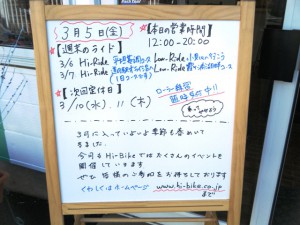 3月5日(金)
★【本日の営業時間】
12:00-20:00
★【週末のライド】
3/6 Hi-Ride
Low-Ride
3/7 Hi-Ride
Low-Ride
★【次回定休日】
3/10(水)、11(木)
随時受付中!!
3月に入っていよいよ季節も春めいて
きました。
今月もHi-Bikeではたくさんのイベントを
開催しています
ぜひ皆様のご参加をお待ちしております
くわしくはホームページ
www.hi-bike.co.jp
まで